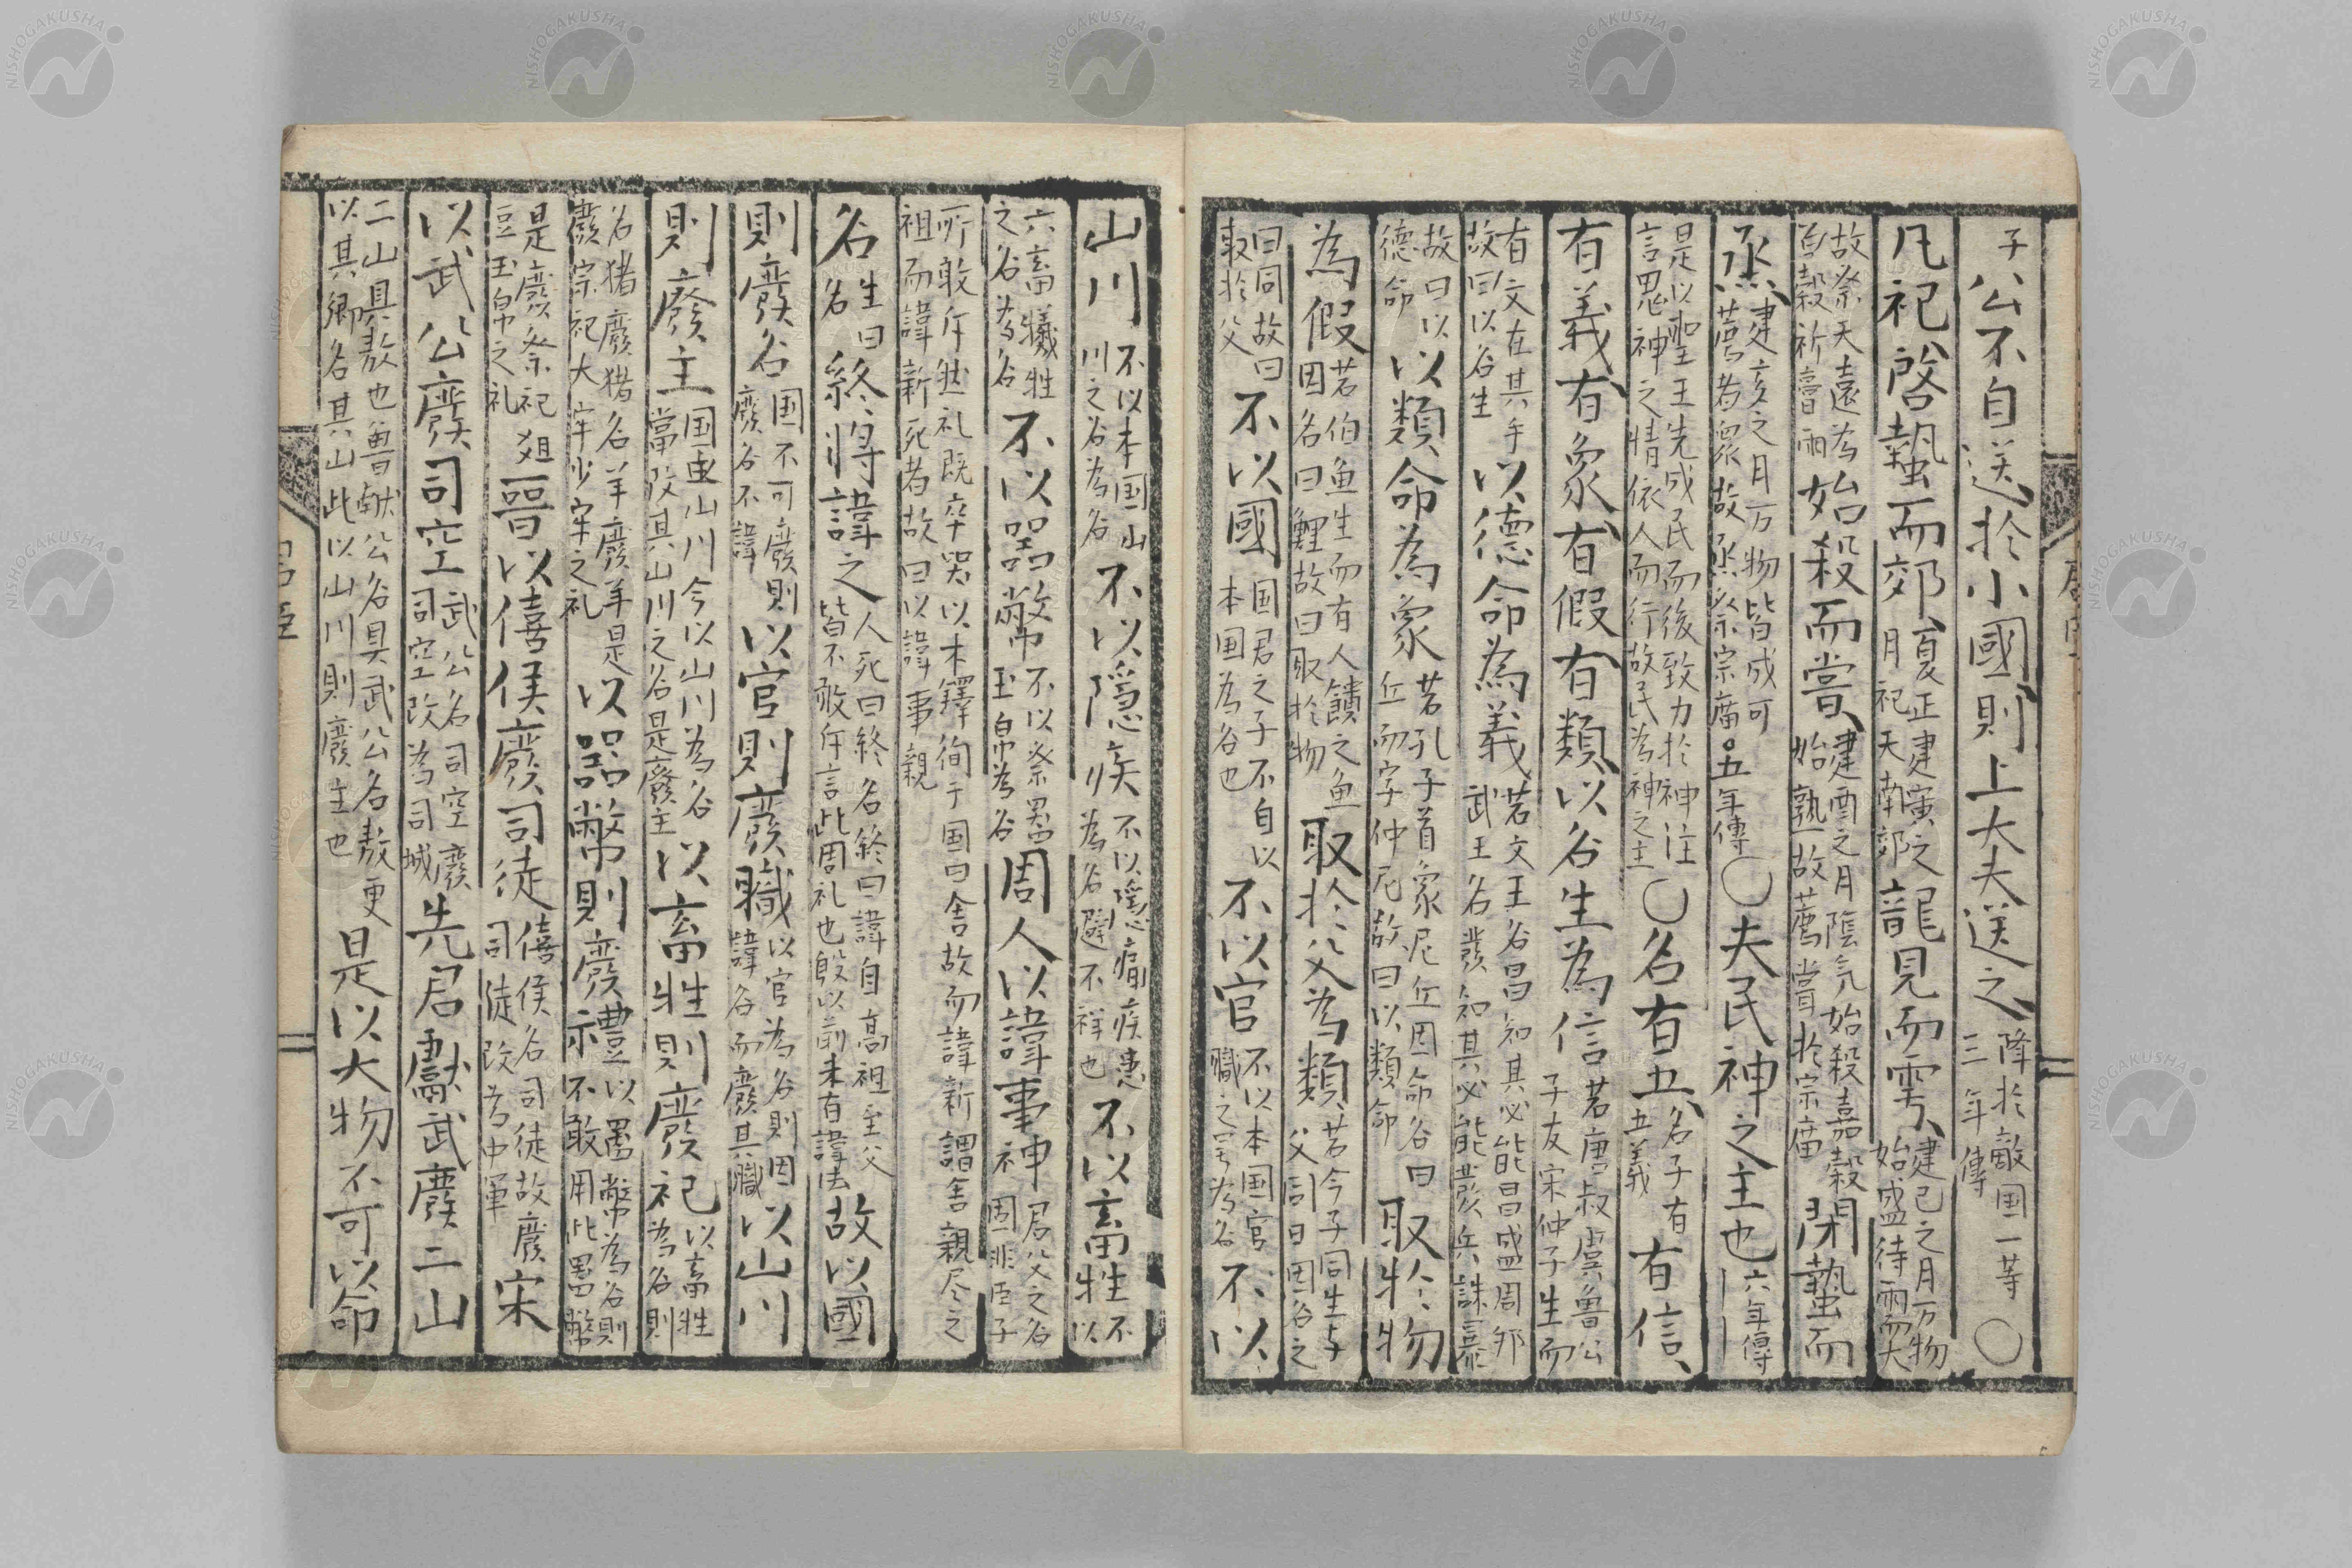 子公不自送於小國則上大夫送之降於敵国一等三年傳〇
凡祀啓蟄而郊夏正建寅之月祀天南郊龍見而雩建巳之月万物始盛待雨而大
故祭天遠為百穀祈膏雨始殺而嘗建酉之月陰気始殺嘉穀始熟故薦嘗於宗庙閉蟄而
烝建亥之月万物皆成可薦者衆故烝祭宗庙五年傳〇夫民神之主也六年傳
是以聖王先成民而後致力於神注言鬼神之情依人而行故民為神之主〇名有五名子有五義有信
有義有象有假有類以名生為信若唐叔虞魯公子友宋仲子生而
有文在其手故曰以名生以德命為義若文王名昌知其必能昌盛周邦武王名發知其必能發兵誅暴
故曰以德命以類命為象若孔子首象尼丘因命名曰丘而字仲尼故曰以類命取於物
為假若伯魚生而有人饋之魚因名曰鯉故曰取於物取於父為類若今子同生与父同日因名之
曰同故曰取於父不以國国君之子不自以本国為名也不以官不以本国官職之号為名不以
山川不以本国山川之名為名不以隱疾不以隱痛疾患為名避不祥也不以畜牲不以
六畜犧牲之名為名不以器幣不以祭器玉帛為名周人以諱事神君父之名固非臣子
所敢斥然礼既卒哭以木鐸徇于国曰舎故而諱新謂舎親尽之祖而諱新死者故曰以諱事親
名生曰名終將諱之人死曰終名終曰諱自高祖至父皆不敢斥言此周礼也殷以前未有諱法故以國
則廢名国不可廢則廢名不諱以官則廢職以官為名則因諱名而廢其職以山川
則廢主国主山川今以山川為名當改其山川之名是廢主以畜牲則廢祀以畜牲為名則
名猪廢猪名羊廢羊是廢宗祀大牢少牢之礼以器幣則廢禮以器幣為名則不敢用此器幣
是廢祭祀俎豆玉帛之礼晉以僖侯廢司徒僖侯名司徒故廢司徒改為中軍宋
以武公廢司空武公名司空廢司空改為司城先君獻武廢二山
二山具敖也魯献公名具武公名敖更以其卿名其山此以山川則廢主也是以大物不可以命